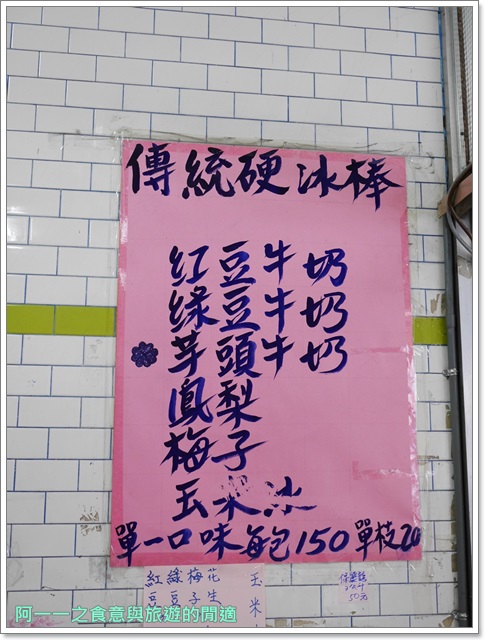 傳統硬冰棒
紅豆牛奶
綠豆牛奶
芋頭牛奶
鳳梨
梅子
玉米冰
單一口味每包150單枝20
紅豆
綠豆
梅子
花生
玉米
50元
阿一一之食意與旅遊的閒適